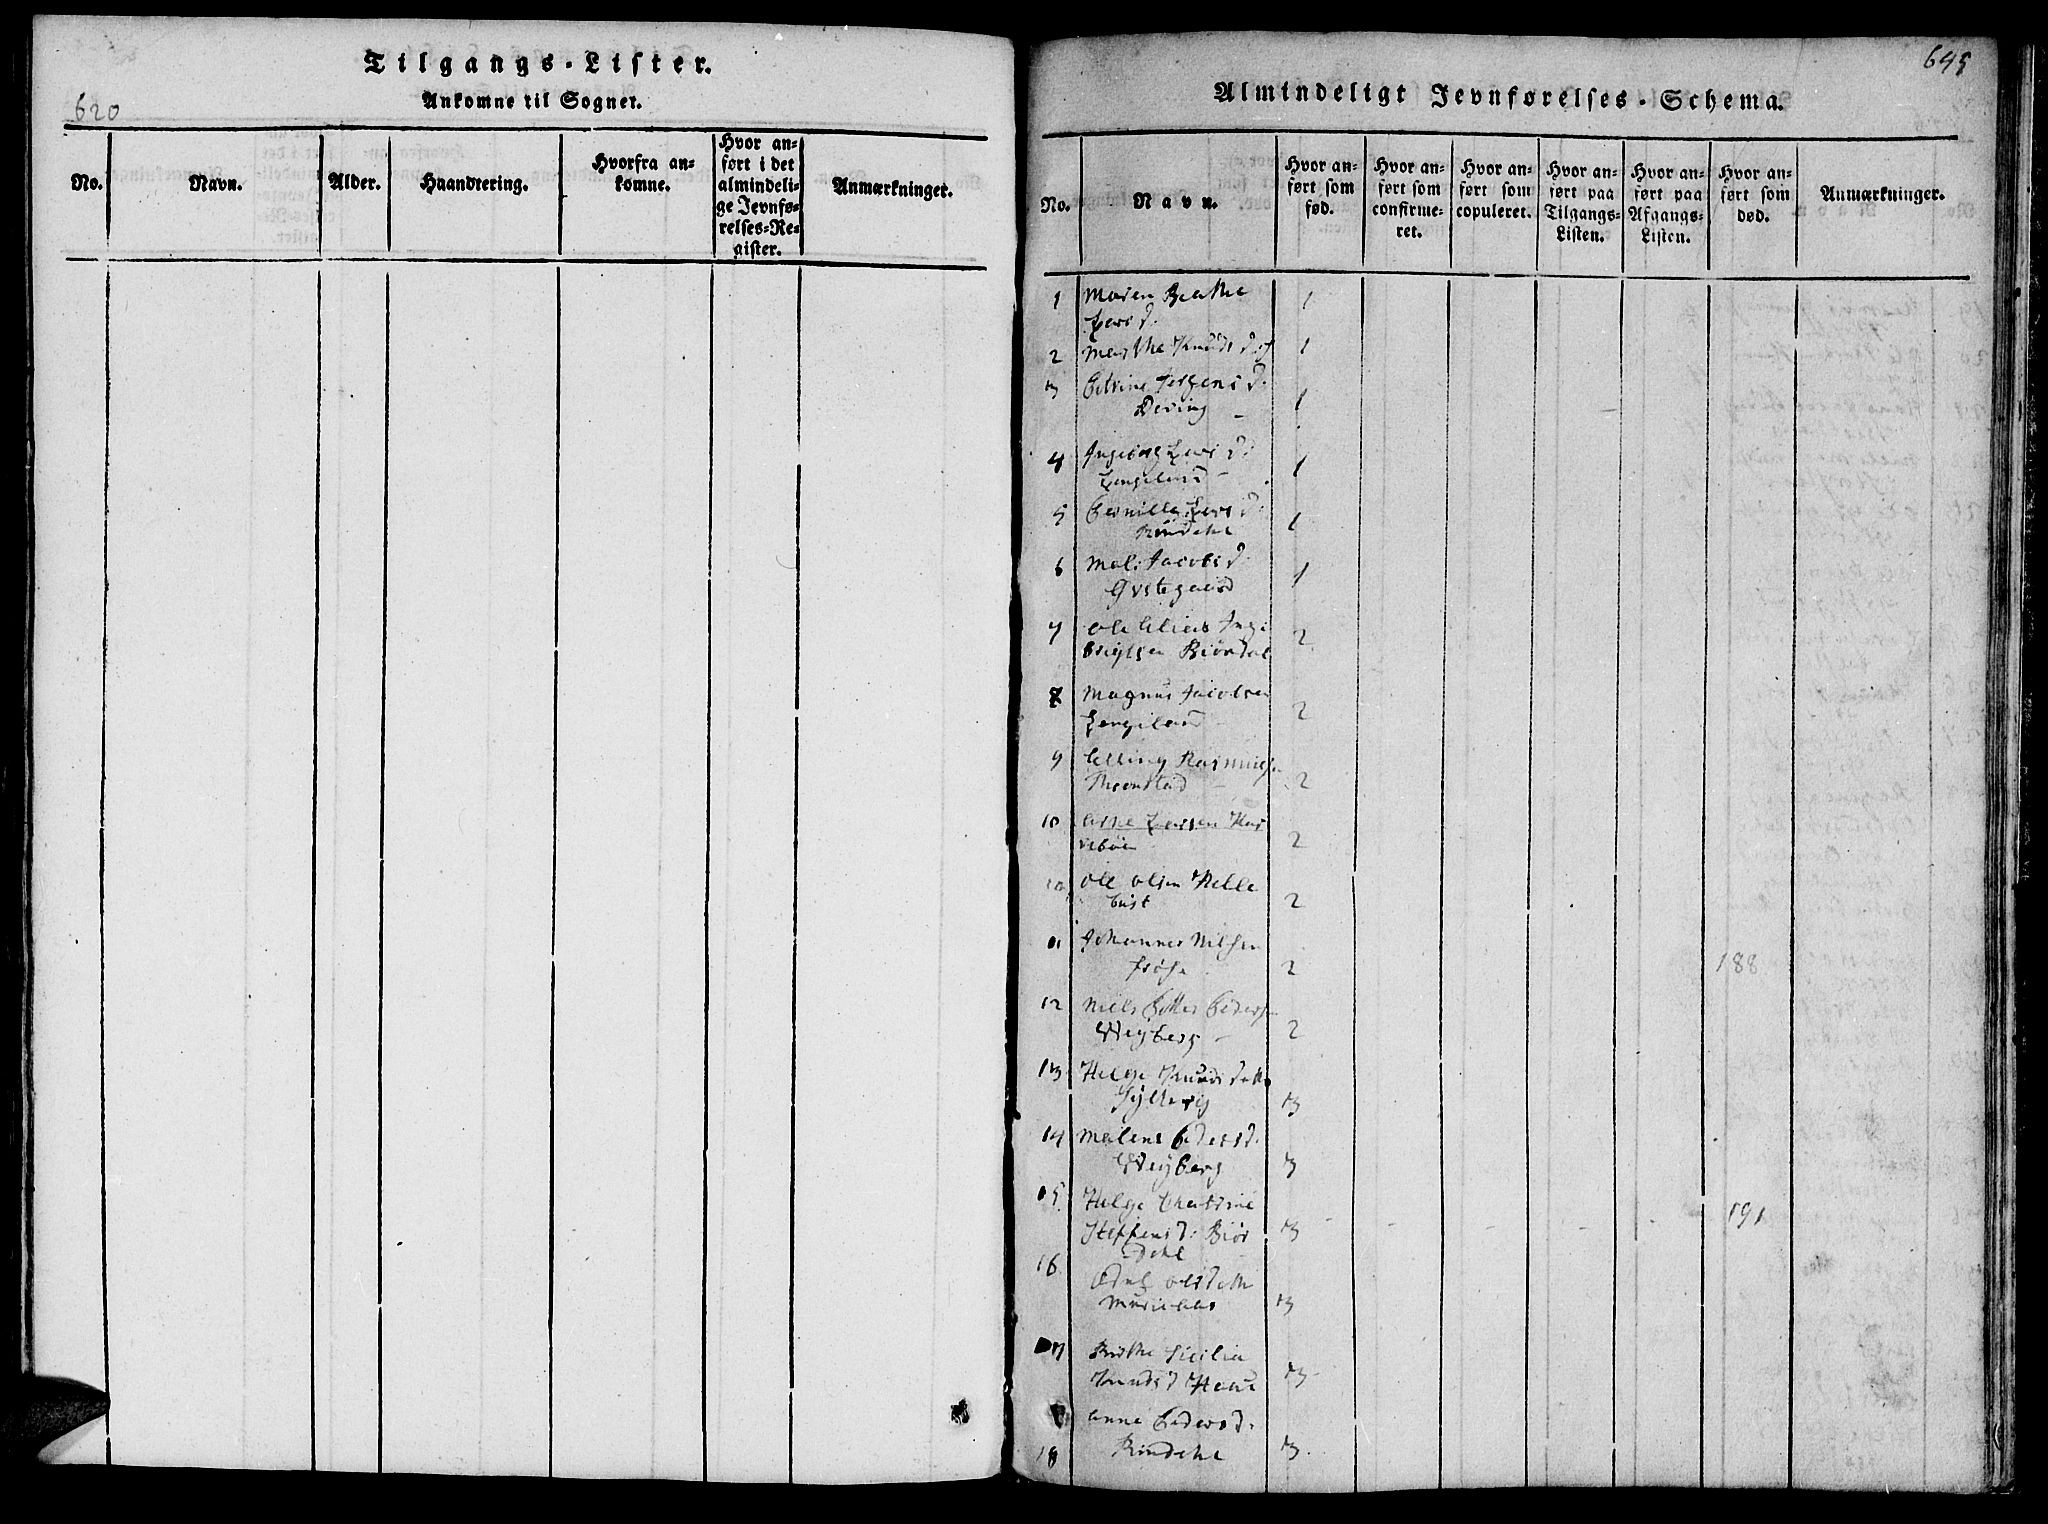 Tilgangs-Lister.
620
Ankomne til Sognet.
No.
Navn.
Alder.
Haandtering.
Hvorfra an-
komne.
Hvor an-
ført i det
almindeli-
ge Jevnfø-
relses-Re-
gister.
Anmærkninger.
645
Almindeligt Jevnførelses-Schema.
No.
Navn.
Hvor an-
ført som
fød.
Hvor an-
ført som
confirme-
ret.
Hvor an-
ført som
copuleret.
Hvor an-
ført paa
Tilgangs-
Listen.
Hvor an-
ført paa
Afgangs-
Listen.
Hvor an-
ført som
død.
Anmærkninger.
1 Maren Beathe 1
Lars d.
2 Marthe Knuds d. 1
3 Petrine Jørgens d.
1
4 Ingeborg Lars d.
Langeland 1
5 Pernille Lars d.
Rindehl 1
6 Mali Jacobs d.
Øvstegaard 1
7 Ole Elias Inge
brigtsen Biørdal 2
8 Magnus Jacobsen
Langeland 2
9 Elling Rasmussen
2
10 Lars Larsen Har
2
10 Ole Olsen Welle
2
11 Johannes Nilsen
2 188
12 Niels Petter Peders
Weyberg 2
13 Helge Knuds datter
3
14 Malene Peders d.
Weyberg 3
15 Helge Chatrine
Steffens d. Biør 3 191
dahl
16 Ols datter
3
17 Birthe Sicilia
Knuds d. 3
Anne Peders d.
18 Rindehl 3